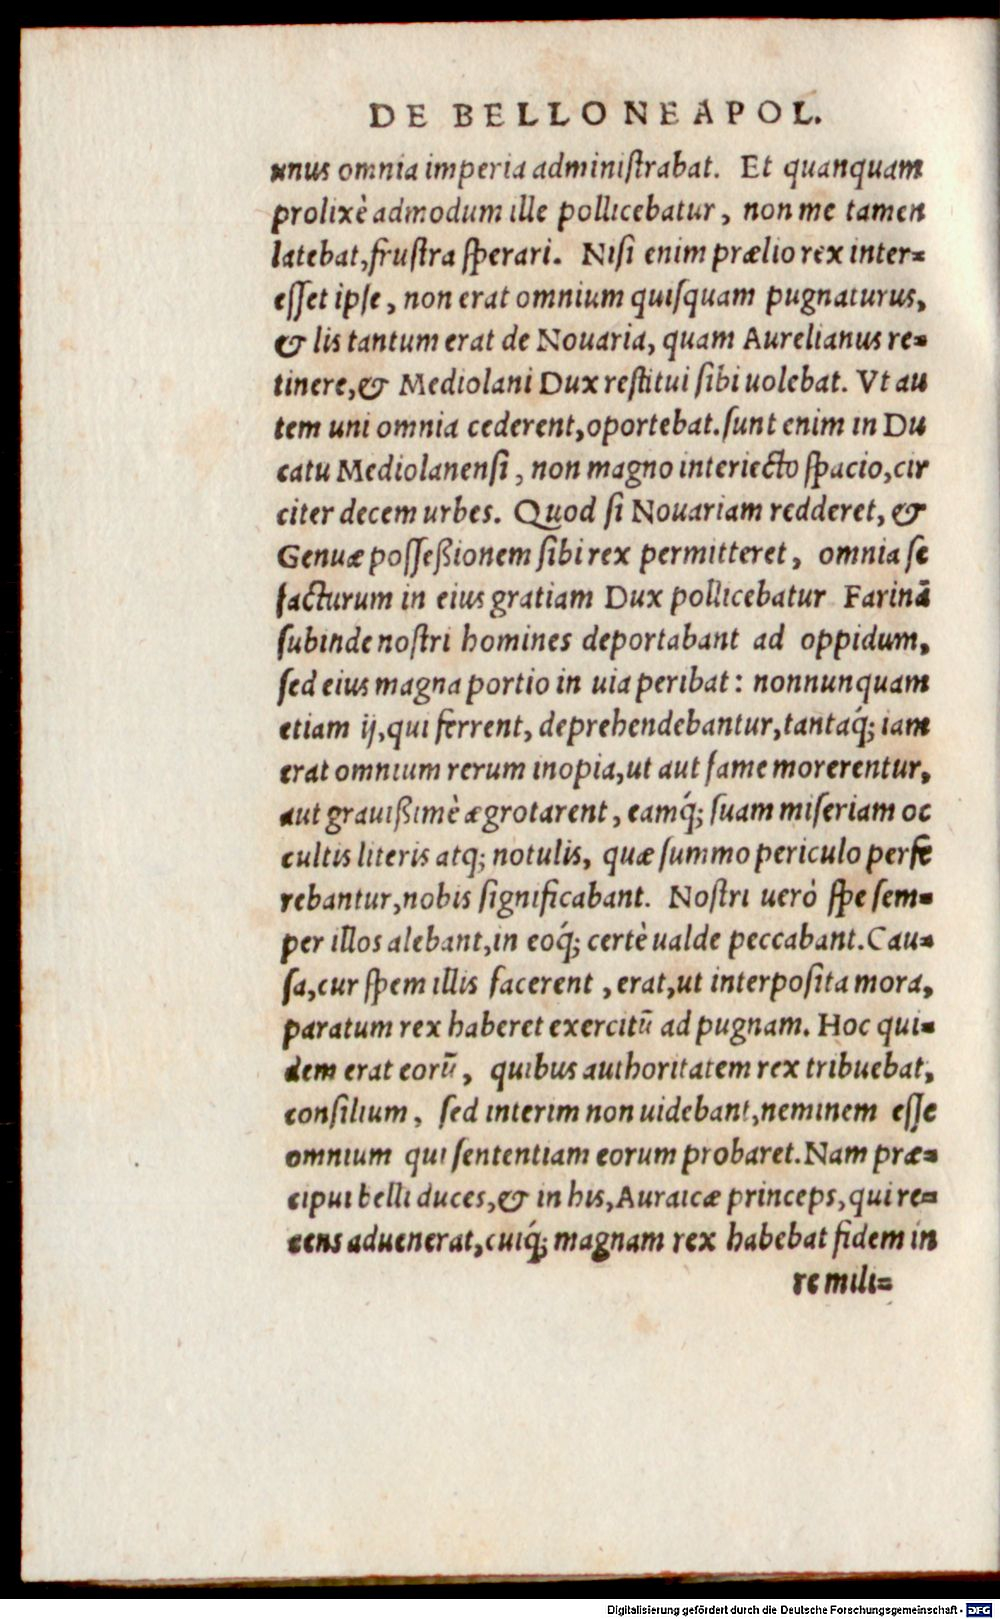 DE BELLO NEAPOL.
unus omnia imperia administrabat. Et quanquam
prolixè admodum ille pollicebatur, non me tamen
latebat, frustra sperari. Nisi enim prælio rex inter=
esset ipse, non erat omnium quisquam pugnaturus,
& lis tantum erat de Nouaria, quam Aurelianus re=
tinere, & Mediolani Dux restitui sibi uolebat. Vt au
tem uni omnia cederent, oportebat. sunt enim in Du
catu Mediolanensi, non magno interiecto spacio, cir
citer decem urbes. Quod si Nouariam redderet, &
Genuæ posseßionem sibi rex permitteret, omnia se
facturum in eius gratiam Dux pollicebatur Farinā
subinde nostri homines deportabant ad oppidum,
sed eius magna portio in uia peribat: nonnunquam
etiam ij, qui ferrent, deprehendebantur, tantaq́; iam
erat omnium rerum inopia, ut aut fame morerentur,
aut grauißimè ægrotarent, eamq́; suam miseriam oc
cultis literis atq; notulis, quæ summo periculo perfe
rebantur, nobis significabant. Nostri uerò spe sem=
per illos alebant, in eoq́; certè ualde peccabant. Cau=
sa, cur spem illis facerent, erat, ut interposita mora,
paratum rex haberet exercitū ad pugnam. Hoc qui=
dem erat eorū, quibus authoritatem rex tribuebat,
consilium, sed interim non uidebant, neminem esse
omnium qui sententiam eorum probaret. Nam præ=
cipui belli duces, & in his, Auraicæ princeps, qui re=
cens aduenerat, cuiq́; magnam rex habebat fidem in
re mili=
Digitalisierung gefördert durch die Deutsche Forschungsgemeinschaft - DFG